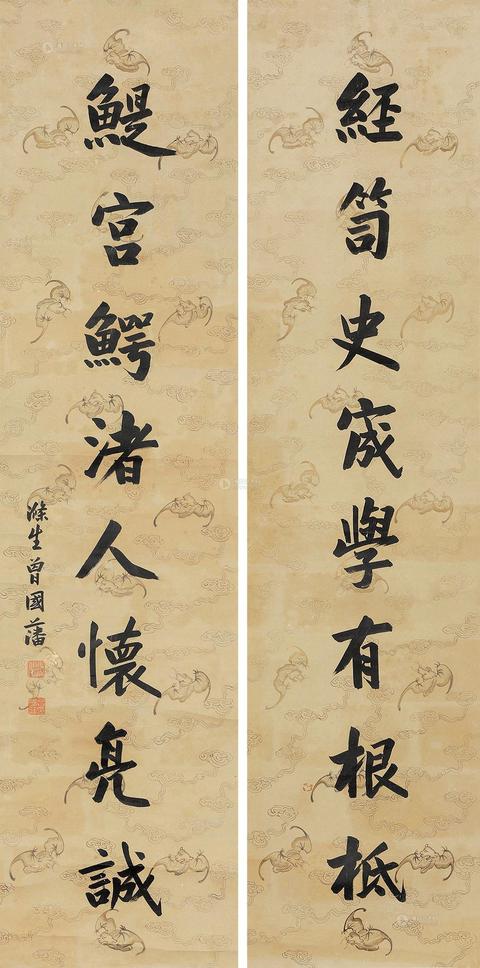 經笥史宬學有根柢
鯷宮鰐渚人懷亮誠
滌生曾國藩